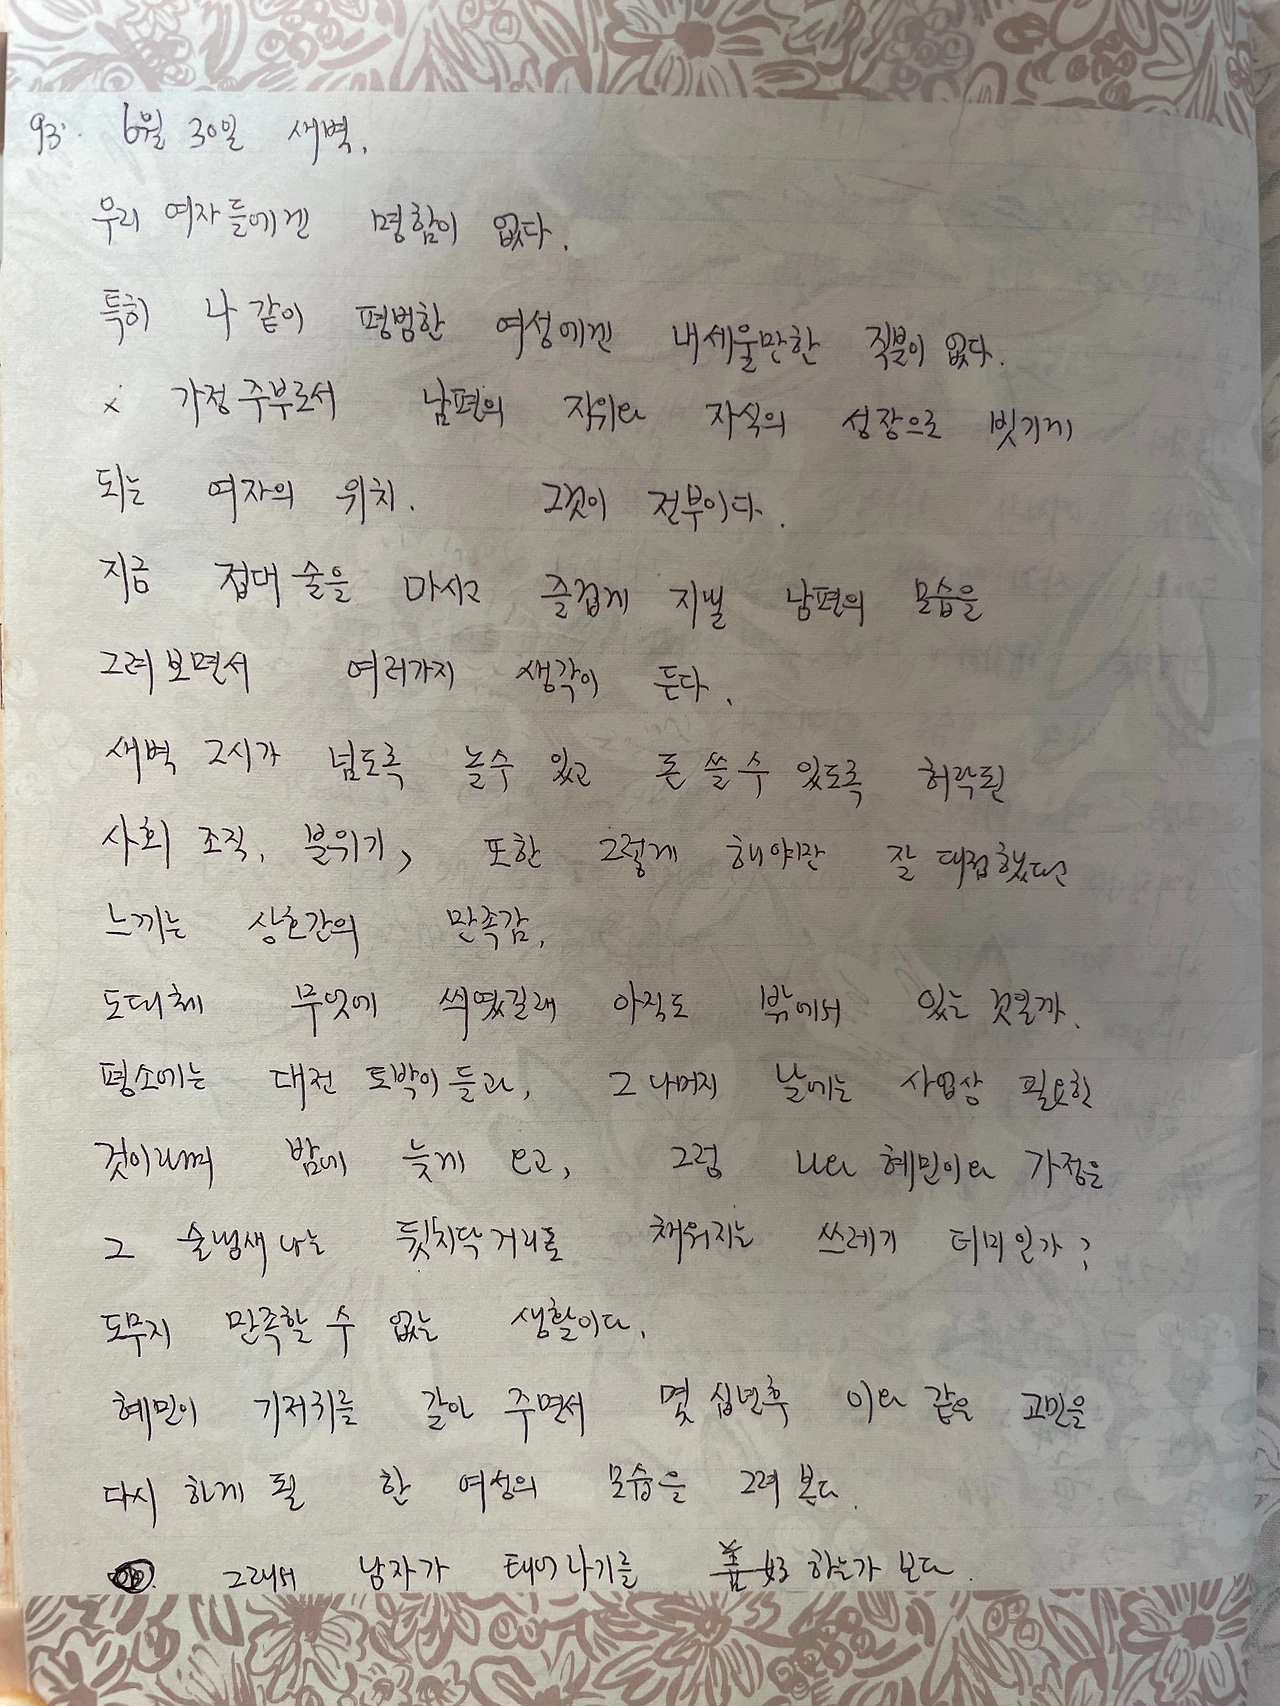 93. 6월 30일 새벽.
우리 여자들에겐 명함이 없다.
특히 나 같이 평범한 여성에겐 내세울만한 직분이 없다.
× 가정주부로서 남편의 지위와 자식의 성장으로 빗기게
되는 여자의 위치. 그것이 전부이다.
지금 접대 술을 마시고 즐겁게 지낼 남편의 모습을
그려보면서 여러가지 생각이 든다.
새벽 2시가 넘도록 놀수 있고 돈 쓸 수 있도록 허락된
사회 조직, 분위기, 또한 그렇게 해야만 잘 대접했다고
느끼는 상호간의 만족감,
도대체 무엇에 씌였길래 아직도 밖에서 있는 것일까.
평소에는 대전 토박이들과, 그 나머지 날에는 사업상 필요한
것이라며 밤에 늦게 오고, 그럼 나와 혜민이와 가정은
그 술냄새 나는 뒷치닥거리로 채워지는 쓰레기 더미인가?
도무지 만족할 수 없는 생활이다.
혜민이 기저귀를 갈아 주면서 몇 십년후 이와 같은 고민을
다시 하게 될 한 여성의 모습을 그려 본다.
그래서 남자가 태어나기를 好하는가 보다.